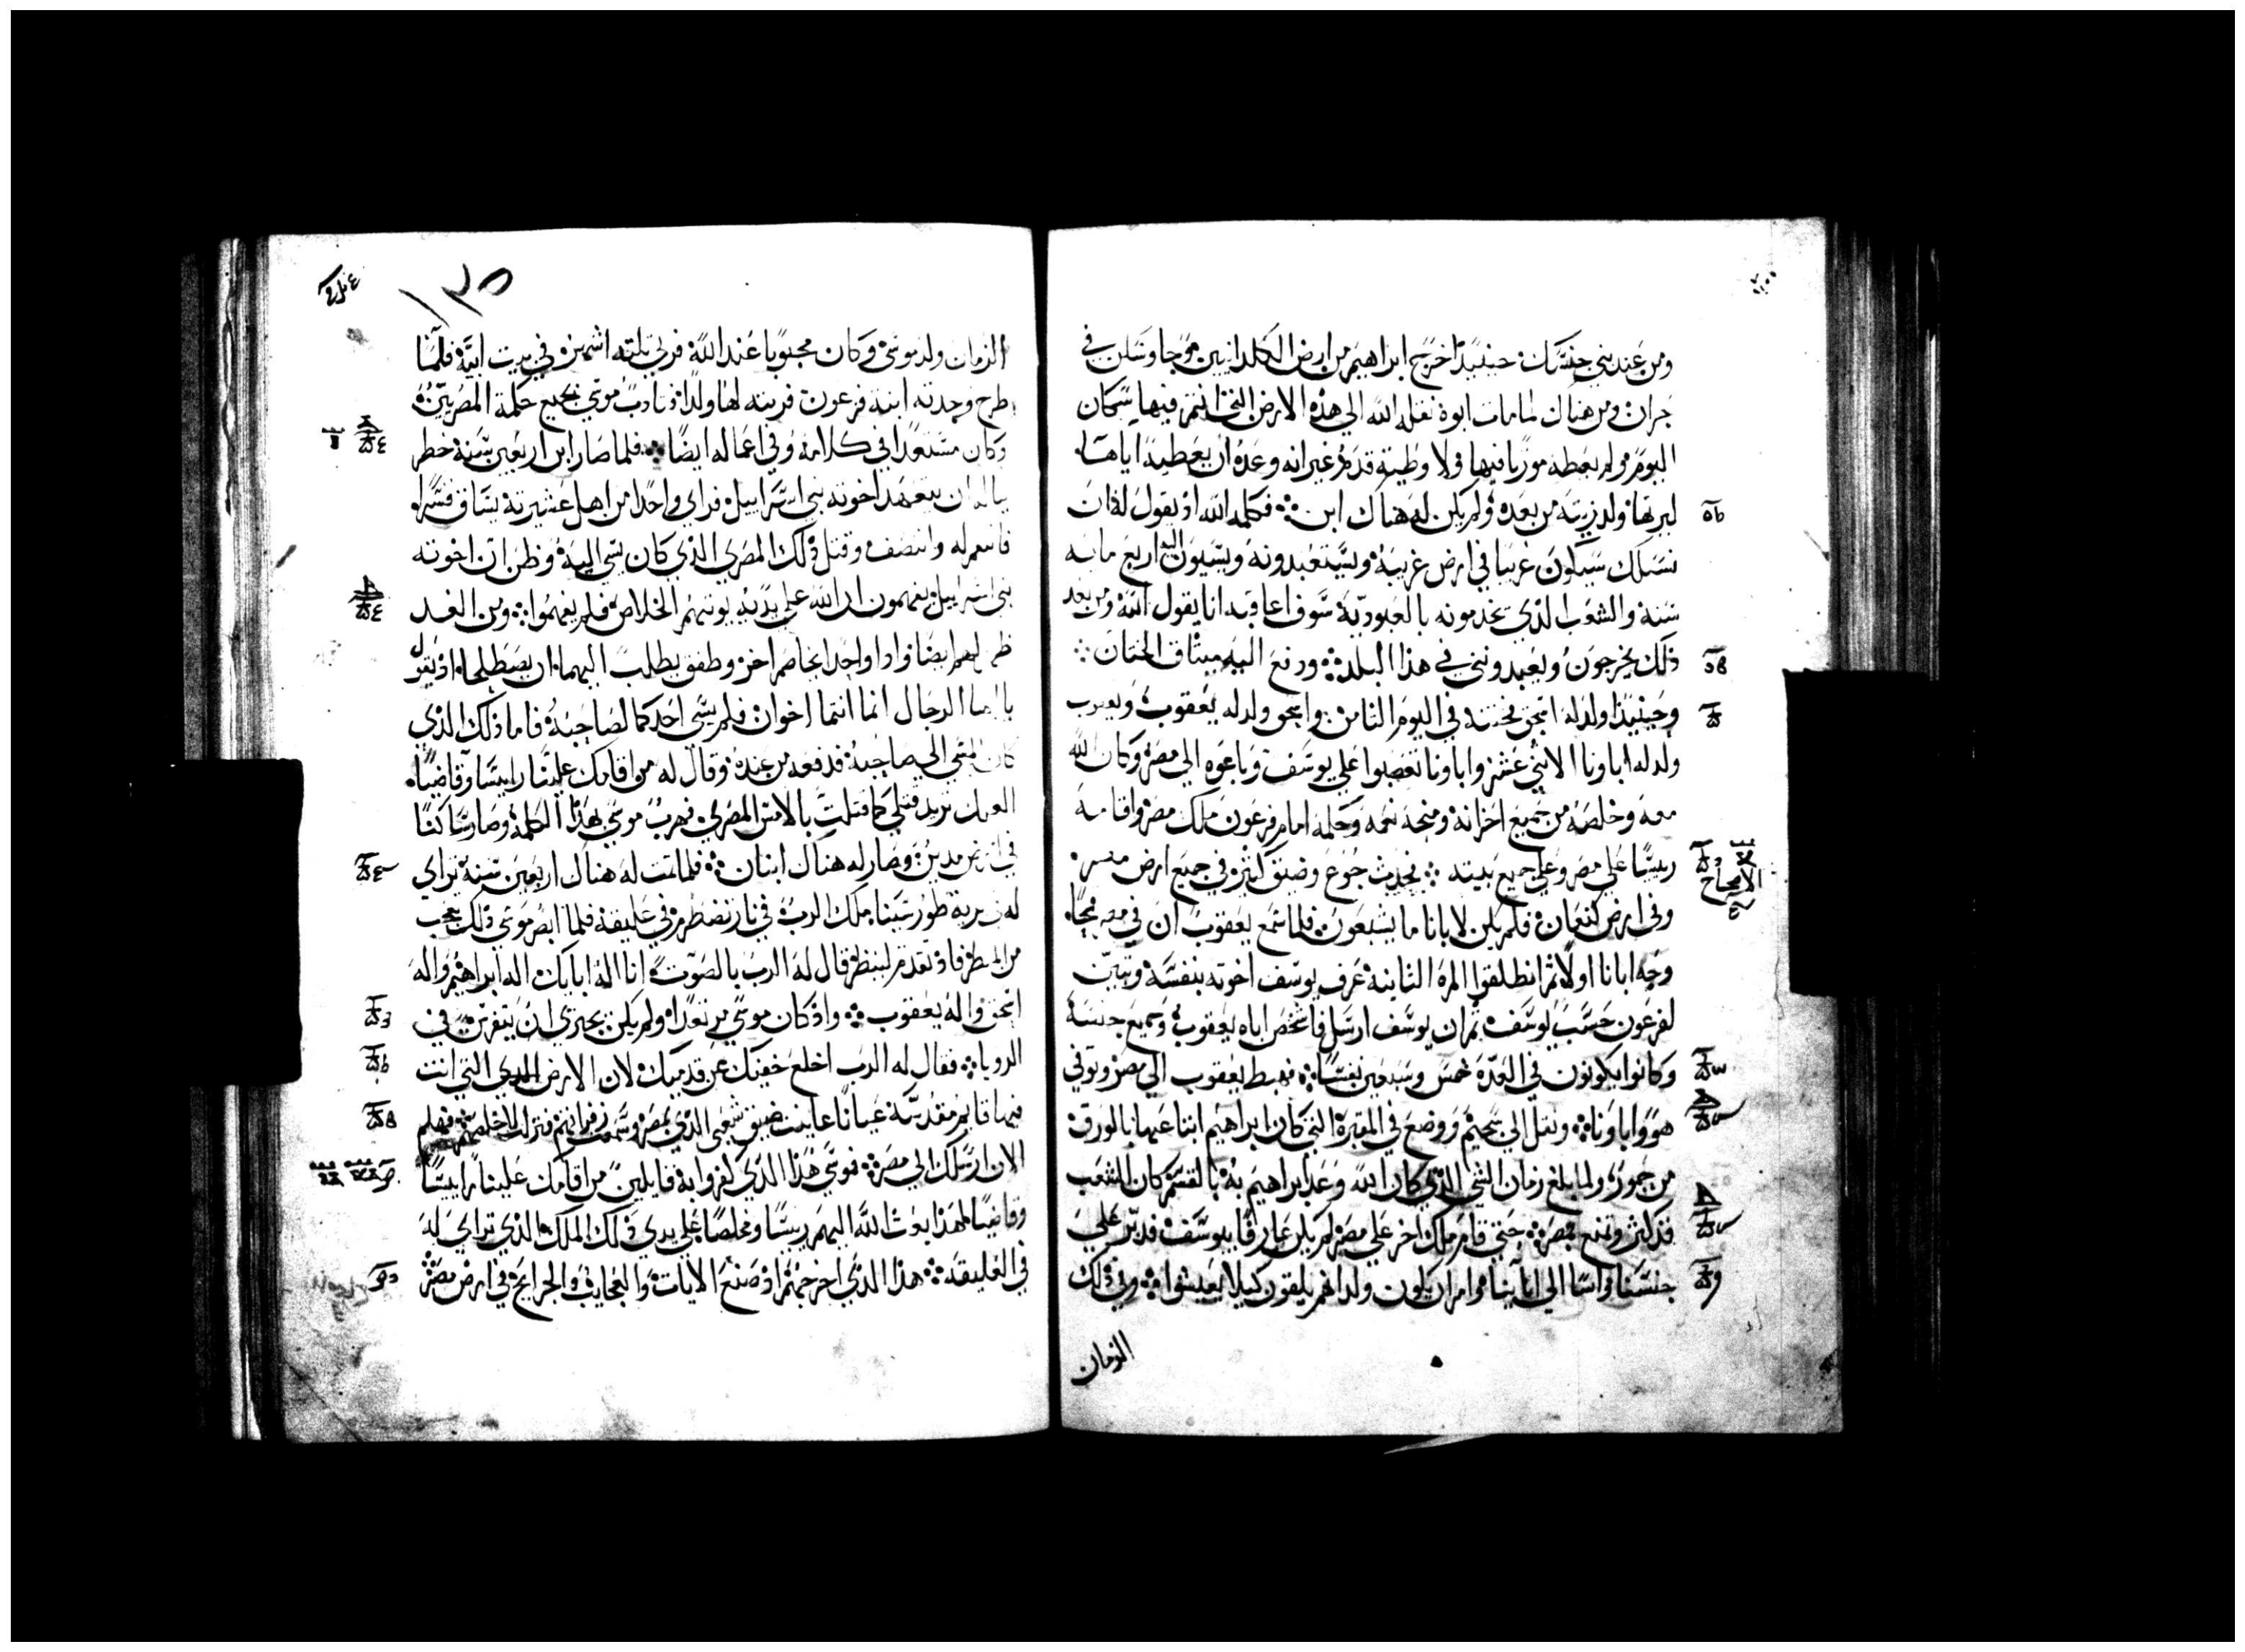 ومن عند بني جنسك حينيذ اخرج ابراهيم من ارض الكلدانيين موجا وسكن في
حران ومن هناك لما مات ابوه نقله الله الي هذه الارض التي انتم فيها سكان
اليوم ولم يعطه موريا فيها ولا وطية قدم غير انه وعده ان يعطيه اياها
ليرتها ولذريته من بعده ولم يكن له هناك ابن فكلمه الله اذ يقول له ان
نسلك سيكون غريبا في ارض غريبة وسيتعبدونه ويسيون اليه اربع مايه
سنة والشعب الذي يخدمونه بالعبودية سوف اعاقبه انا يقول الله ومن بعد
ذلك يخرجون ويعبدونني في هذا البلد ودفع اليه ميثاق الختان
وحينيذ اولد له اسحق فختنه في اليوم الثامن واسحق ولد له يعقوب ويعقوب
ولد له اباونا الاثني عشر واباونا تعصبوا علي يوسف وباعوه الي مصر وكان الله
معه وخلصه من جميع احزانه ومنحه نعمه وحكمه امام فرعون ملك مصر واقامه
ريسا علي مصر وعلي جميع بيته فحدث جوع وضيق كثير في جميع ارض مصر
الاصحاح
وفي ارض كنعان فلم يكن لابانا ما يشبعون فلما سمع يعقوب ان في مصر قمحا
وجه ابانا اولا ثم انطلقوا المره الثانية عرف يوسف اخوته بنفسه وتبين
لفرعون حسب يوسف ثم ان يوسف ارسل فاشخص اباه يعقوب وجميع جنسه
وكانوا يكونون في العدة خمس وسبعين نفسا فهبط يعقوب الي مصر وتوفي
هو واباونا ونقل الي شخيم ووضع في المقبرة التي كان ابراهيم ابتاعها بالورق
من حمور ولما بلغ زمان الشي الذي كان الله وعد ابراهيم به بالقسم كان الشعب
قد كثر وتمنع بمصر حتي قام ملك اخر علي مصر لم يكن عارفا بيوسف فدبر علي
جنسنا واسا الي ابآينا وامر ان يكون ولدانهم يلقون كيلا يعيشوا وفي ذلك
الزمان
١٣٥
الزمان ولد موسي وكان محبوبا عند الله فربي ثلثه اشهر في بيت ابيه فلما
طرح وجدته ابنة فرعون فربته لها ولدا فتادب موسي بجميع حكمة المصريين
وكان مستعدا في كلامه وفي اعماله ايضا فلما صار ابن اربعين سنة خطر
بباله ان يتعهد اخوته بني اسراييل فراي واحدا من اهل عشيرته يساق قسرا
فانتقم له وانتصف وقتل ذلك المصري الذي كان يسي اليه وظن ان اخوته
بني اسراييل يفهمون ان الله علي يديه يوتيهم الخلاص فلم يفهموا ومن الغد
ظهر لهم ايضا واذا واحد يخاصم اخر وطفق يطلب اليهما ان يصطلحا اذ يقول
يا ايها الرجال انما انتما اخوان فلم يسي احدكما لصاحبه فاما ذلك الذي
كان المسي الي صاحبه فدفعه من عنده وقال له من اقامك علينا رييسا وقاضيا
العلك تريد قتلي كما قتلت بالامس المصري فهرب موسي بهذا الكلمة وصار ساكنا
في ارض مدين وصار له هناك ابنان فلما تمت له هناك اربعين سنة تراي
له في برية طور سينا ملك الرب في نار تضطرم في عليقة فلما ابصر موسي ذلك تعجب
من المنظر فاذ تقدم لينظر قال له الرب بالصوت انا اله اباك اله ابراهيم واله
اسحق واله يعقوب واذ كان موسي مرتعدا ولم يكن يجتري ان يتفرس في
الرويا فقال له الرب اخلع خفيك عن قدميك لان الارض التي انت
فيها قايم مقدسة عيانا عاينت ضيق شعبي الذي بمصر وسمعت زفراتهم فنزلت لاخلصهم فهلم
الان ارسلك الي مصر فموسي هذا الذي كفروا به قايلين من اقامك علينا راييسا
وقاضيا لهذا بعث الله اليهم رييسا ومخلصا علي يدي ذلك الملك الذي تراي له
في العليقه هذا الذي اخرجهم اذ صنع الايات والعجايب والجرايح في ارض مصر